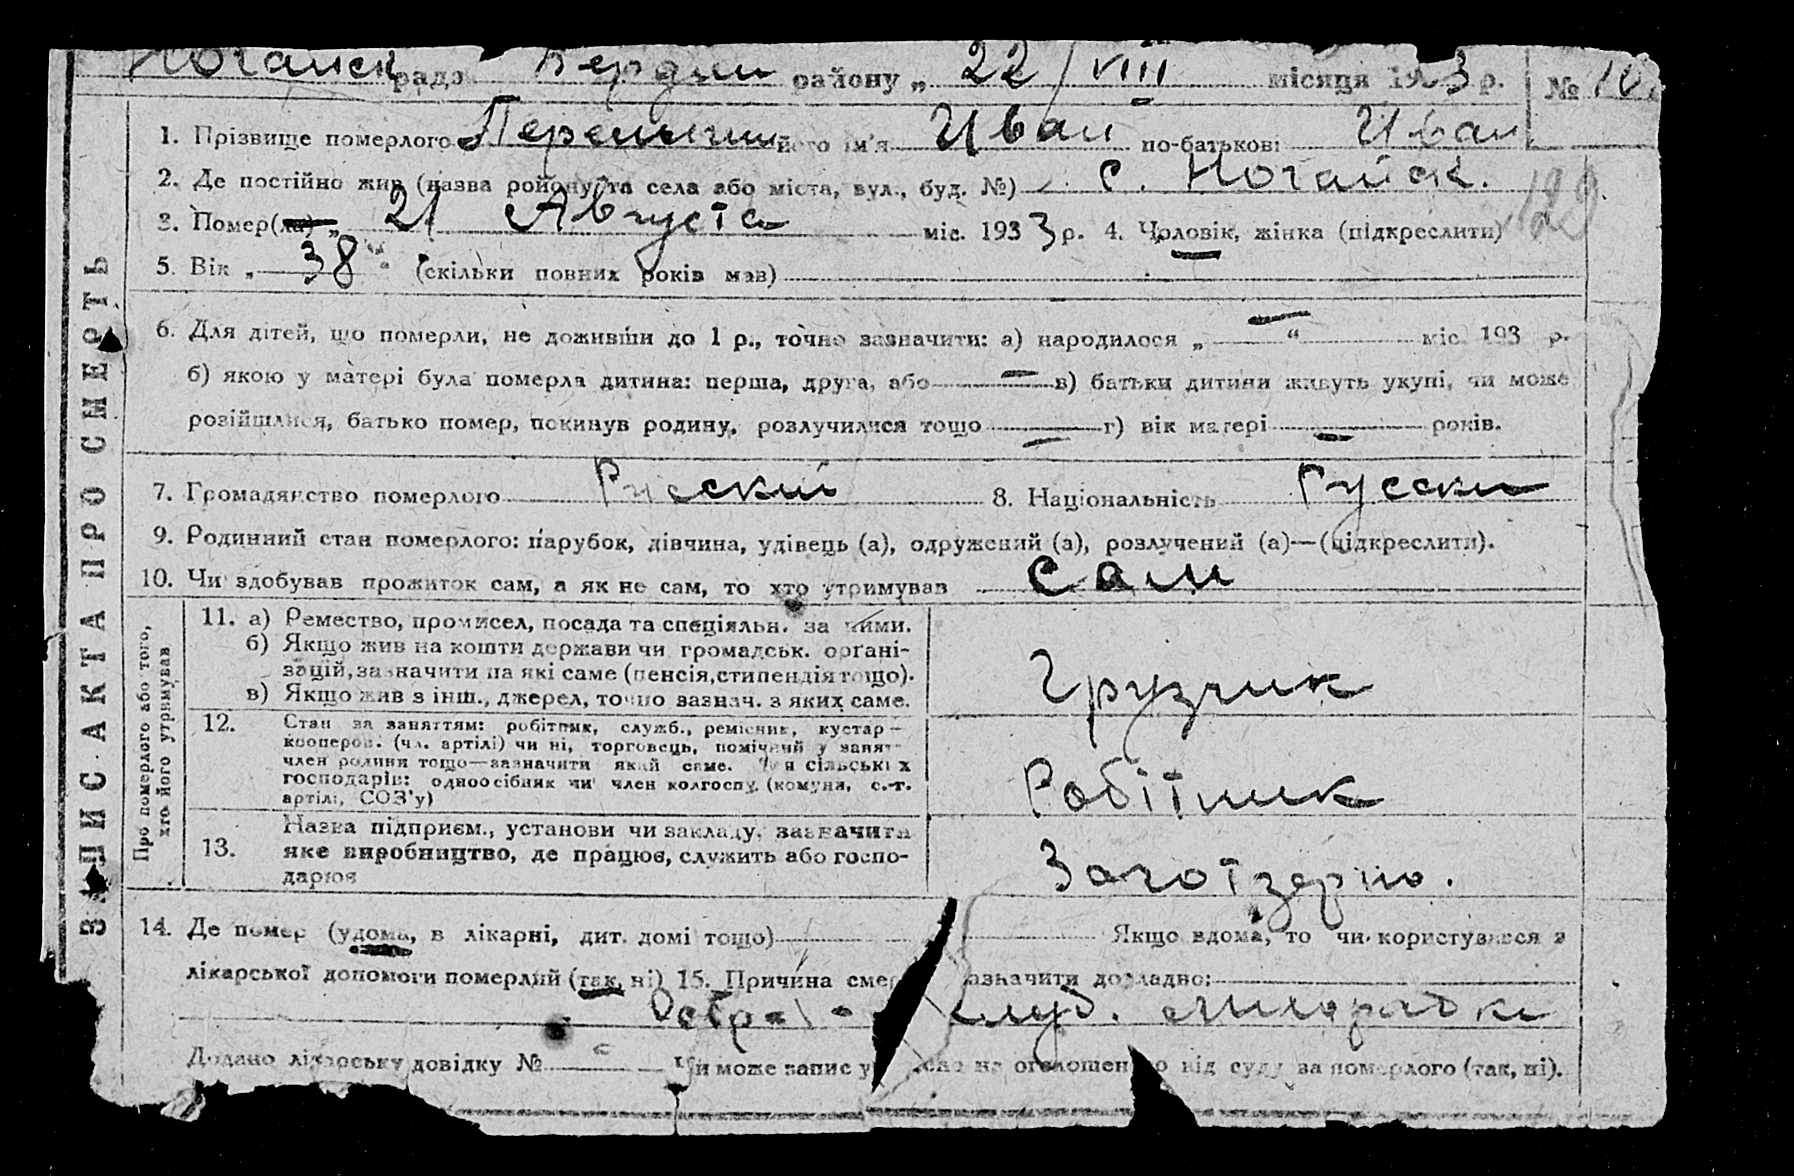 Ногайск рада Бердян району „ 22/VIII місяця 1933 р. № 10
1. Прізвище померлого його ім'я Иван по-батькові Иван
2. Де постійно жив (назва району та села або міста, вул., буд. №) с. Ногайск.
3. Помер(ла) „ 21 Августа міс. 193 3 р. 4. Чоловік, жінка (підкреслити)
5. Вік „ 38 “ (скільки повних років мав)
6. Для дітей, що померли, не доживши до 1 р., точно зазначити: а) народилося „ — “ міс. 193 р.
б) якою у матері була померла дитина: перша, друга, або — в) батьки дитини живуть укупі, чи може
розійшлися, батько помер, покинув родину, розлучилися тощо — г) вік матері — років.
7. Громадянство померлого Русский 8. Національність Русски
9. Родинний стан померлого: парубок, дівчина, удівець (а), одружений (а), розлучений (а)—(підкреслити).
10. Чи здобував прожиток сам, а як не сам, то хто утримував сам
ЗАПИС АКТА ПРО СМЕРТЬ
Про померлого або того,
хто його утримував
11. а) Ремество, промисел, посада та спеціяльн. за ними.
б) Якщо жив на кошти держави чи громадськ. органі-
зацій, зазначити на які саме (пенсія, стипендія тощо).
в) Якщо жив з інш., джерел, точно зазнач. з яких саме.
Грузчик
12. Стан за заняттям: робітник, служб., ремісник, кустар—
кооперов. (чл. артілі) чи ні, торговець, помічний у занят-
член родини тощо—зазначити який саме. Для сільських
господарів: одноосібник чи член колгоспу, (комуни, с.-г.
артілі, СОЗ'у)
Робітник
13. Назва підприєм., установи чи закладу, зазначити
яке виробництво, де працює, служить або госпо-
дарює
Заготзерно.
14. Де помер (удома, в лікарні, дит. домі тощо) Якщо вдома, то чи користувався з
лікарської допомоги померлий (так, ні) 15. Причина смер зазначити докладно:
лихорадка
Додано лікарську довідку № — Чи може запис у на оголошен від суду за померлого (так, ні).